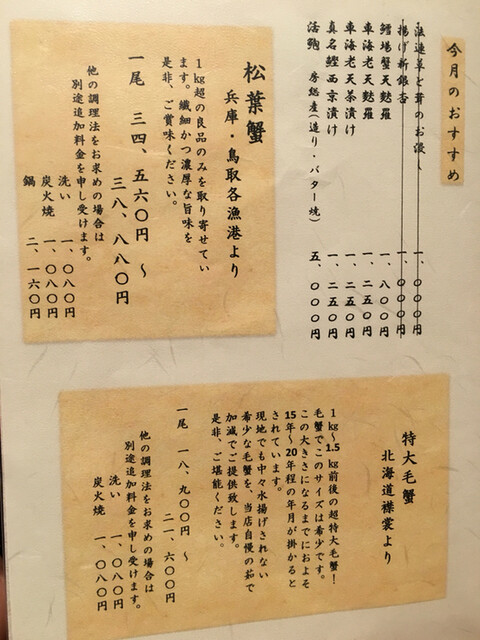 今月のおすすめ
法連草と茸のお浸し 一、〇〇〇円
揚げ新銀杏 一、〇〇〇円
鱈場蟹天麩羅 一、八〇〇円
車海老天麩羅 一、二五〇円
車海老天茶漬け 一、二五〇円
真名鰹西京漬け 一、二五〇円
活鮑 房総産(造り・バター焼) 五、〇〇〇円
松葉蟹
兵庫・鳥取各漁港より
1kg超の良品のみを取り寄せてい
ます。繊細かつ濃厚な旨味を
是非、ご賞味ください。
一尾 三四、五六〇円 〜
三八、八八〇円
他の調理法をお求めの場合は
別途追加料金を申し受けます。
洗い 一、〇八〇円
炭火焼 一、〇八〇円
鍋 二、一六〇円
特大毛蟹
北海道襟裳より
1kg〜1.5kg前後の超特大毛蟹!
毛蟹でこのサイズは希少です。
この大きさになるまでにおよそ
15年〜20年程の年月が掛かると
されています。
現地でも中々水揚げされない
希少な毛蟹を、当店自慢の茹で
加減でご提供致します。
是非、ご堪能ください。
一尾 一八、九〇〇円 〜
二一、六〇〇円
他の調理法をお求めの場合は
別途追加料金を申し受けます。
洗い 一、〇八〇円
炭火焼 一、〇八〇円